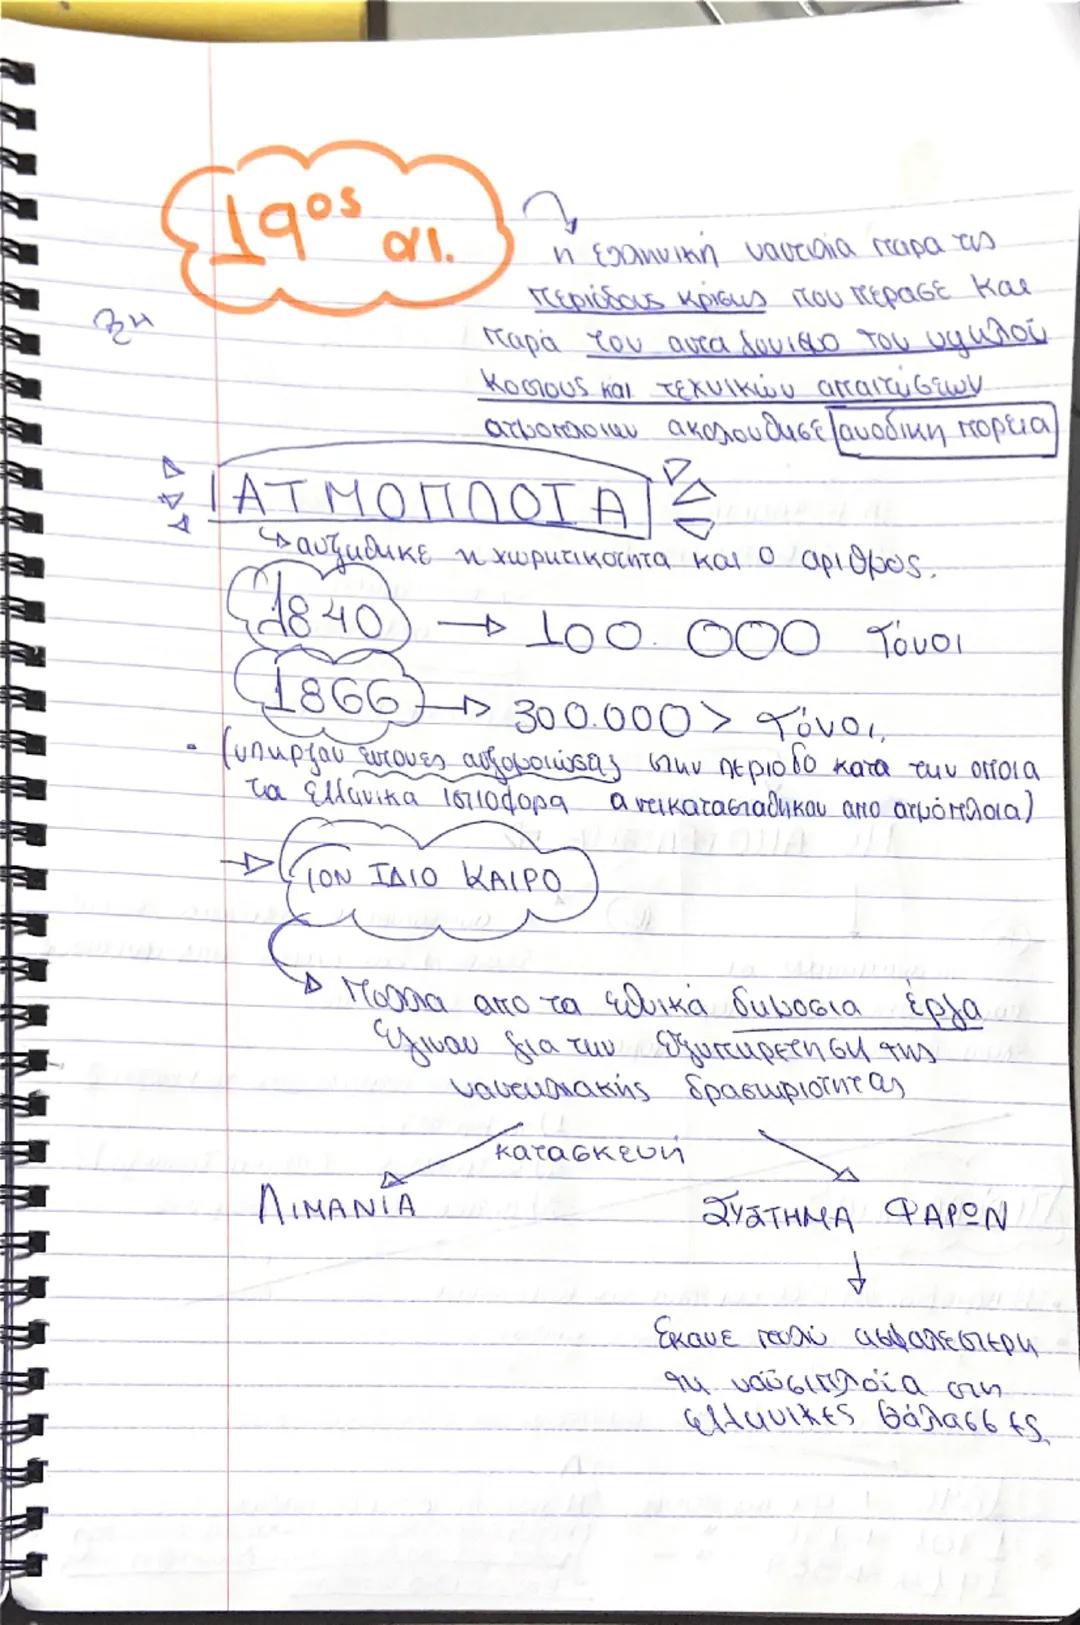 19ος αι.
η ελληνική ναυτιλία παρα τις
περιόδους κρίσης που πέρασε και
παρά τον ανταγωνισμο του υψηλού
κοστους και τεχνικών απαιτήσεων
ατμοπλοιων ακολουθησε ανοδικη πορεια
ΑΤΜΟΠΛΟΙΑ
αυξηθηκε η χωρητικοτητα και ο αριθμος.
1840 → 100.000 Τόνοι
1866 → 300.000 > Τόνοι
- (υπηρξαν εντονες αυξομοιώσεις στην περιοδο κατα την οποια
τα ελληνικα ιστιοφορα αντικατασταθηκαν απο ατμόπλοια)
→ ΤΟΝ ΙΔΙΟ ΚΑΙΡΟ
Πολλα απο τα εθνικά δημοσια έργα
έγιναν για την εξυπηρετηση της
ναυτιλιακής δραστηριότητας
κατασκευή
ΛΙΜΑΝΙΑ ΣΥΣΤΗΜΑ ΦΑΡΩΝ
έκανε πολύ ασφαλεστερη
τη ναυσιπλοΐα στις
ελληνικες θάλασσες